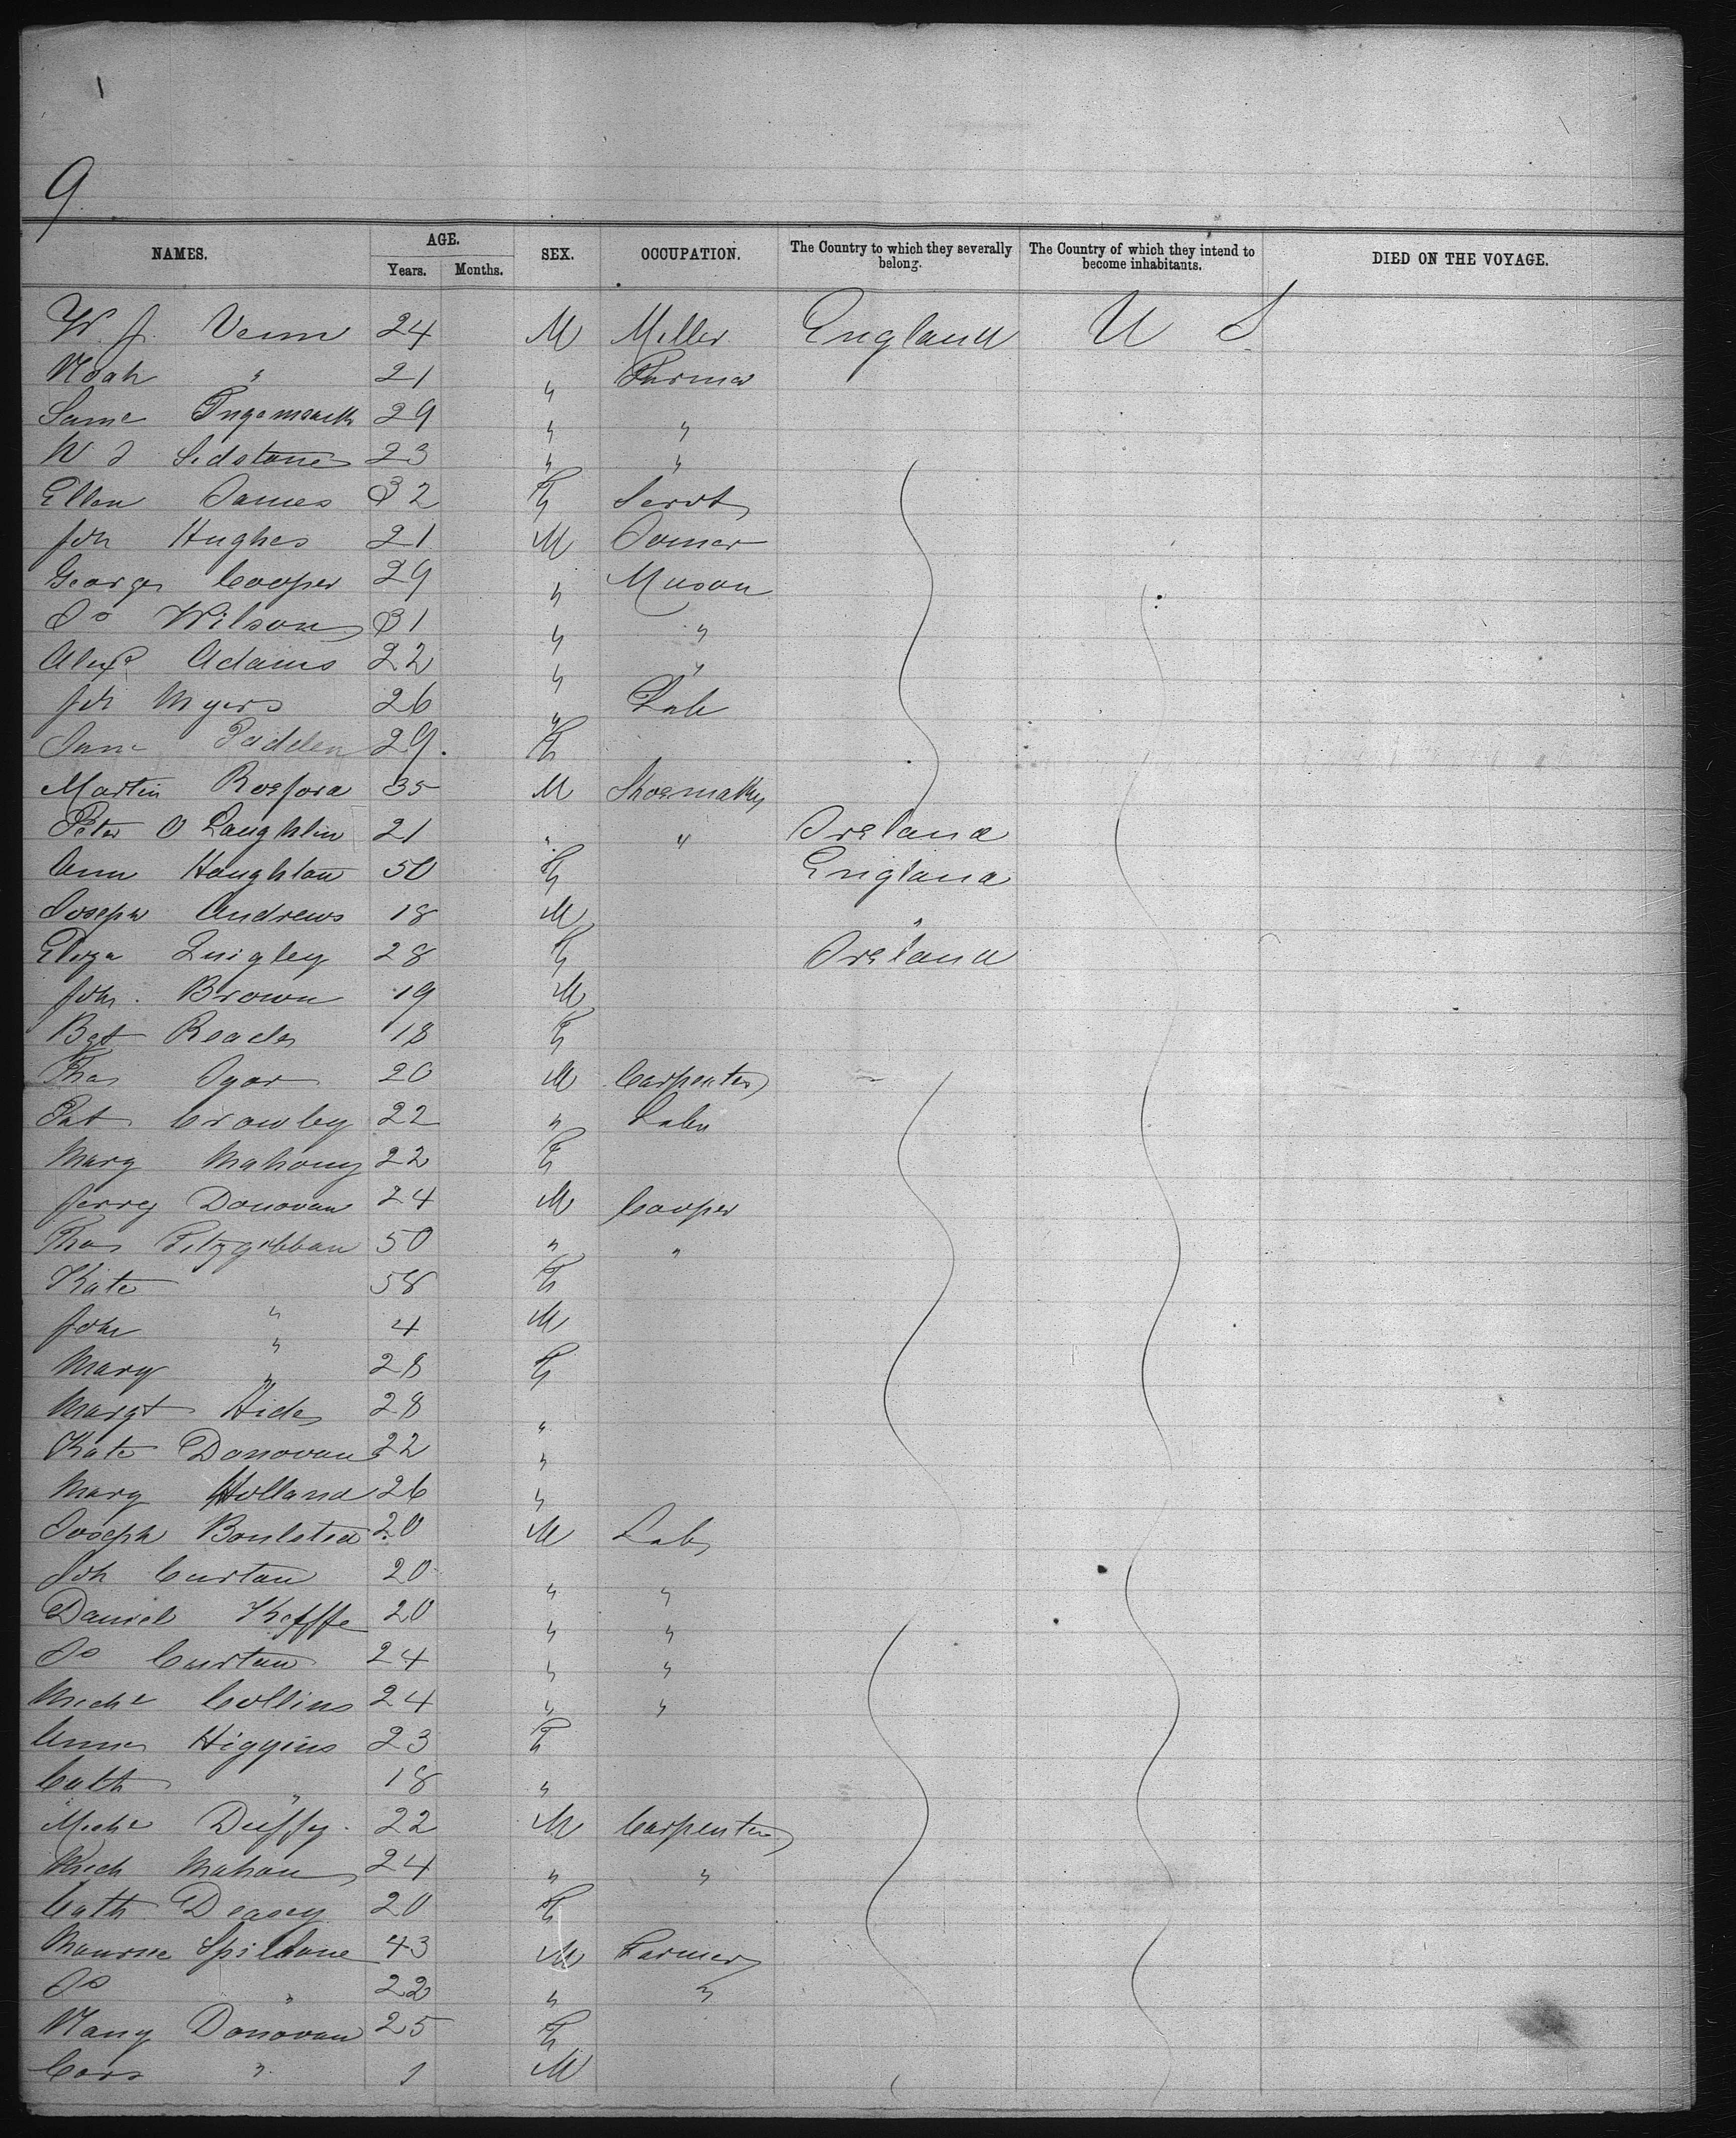 9
NAMES. AGE. Years. Months. SEX. OCCUPATION. The Country to which they severally belong. The Country of which they intend to become inhabitants. DIED ON THE VOYAGE.
W. J. Venn 24 M Miller England U S
Noah " 21 " Farmer
29 " "
W J 23 " "
Ellen James 32 F Servt
Joh Hughes 21 M
George Cooper 29 " Mason
Jo Wilson 31 " "
Alexr Adams 22 " "
Joh Myers 26 " Lab
Jane Padden 29. F
Martin 35 M
Peter O Laughlin 21 " " Ireland
Ann Haughton 50 F England
Joseph Andrews 18 M "
Eliza Quigley 28 F Ireland
Joh. Brown 19 M
Bgt Reade 18 F
Thos 20 M Carpenter
Pat Crowley 22 " Labr
Mary Mahony 22 F
Jerry Donovan 24 M Cooper
Thos Fitzgibbon 50 " "
Kate " 58 F
John " 4 M
Mary " 28 F
Margt Hide 28 "
Kate Donovan 22 "
Mary Holland 26 "
Joseph 20 M Lab
Joh Curtan 20 " "
Daniel Keffe 20 " "
Jo Curtan 24 " "
Michl Collins 24 " "
Anne Higgins 23 F
Cath " 18 "
Michl Duffy 22 M Carpenter
Mich Mahon 24 " "
Cath Deasey 20 F
Spillane 43 M Farmer
Jo " 22 " "
Donovan 25 F
" 1 M